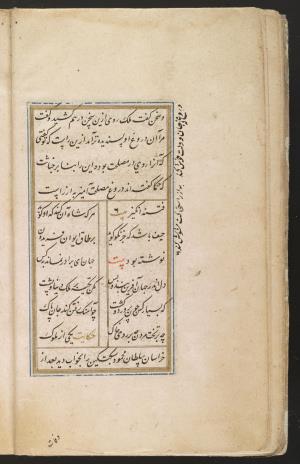 و سخن گفت ملک روی ازین سخن درهم کشید و گفت
مرا آن دروغ او پسندیده تر آمد ازین راست که تو گفتی
که آنرا روی در مصلحت بوده این را بنا بر خباثت
که حکما گفته اند دروغ مصلحت آمیز به از راست
فتنه انگیز بیت
هرکه شاه آن کند که او گوید
حیف باشد که جز نکو گوید
بر طاق ایوان فریدون
نوشته بود بیت
جهان ای برادر نماند بکس
دل اندر جهان آفرین بند و بس
مکن تکیه بر ملک دنیا و پشت
که بسیار کس چون تو پرورد و کشت
چو آهنگ رفتن کند جان پاک
چه بر تخت مردن چه بر روی خاک
حکایت یکی از ملوک
خراسان سلطان محمود سبکتکین را بخواب دید بعد از